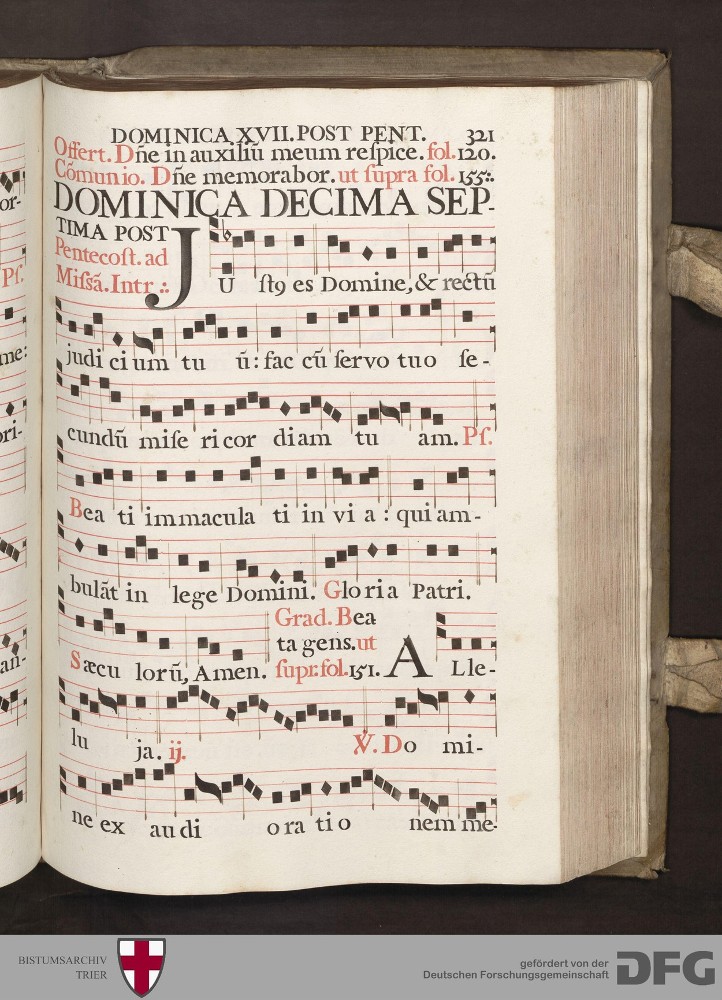 DOMINICA XVII. POST PENT. 321
Offert. Dñe in auxiliũ meum reſpice. fol. 120.
Cõmunio. Dñe memorabor. ut ſupra fol. 155:.
DOMINICA DECIMA SEP-
TIMA POST
Pentecoſt. ad
Miſsã. Intr.:.
JUſt9 es Domine, & rectũ
judi cium tu ũ: fac cũ ſervo tuo ſe-
cundũ miſe ricor diam tu am. Pſ.
Bea ti immacula ti in vi a: qui am-
bulãt in lege Domini. Gloria Patri.
Sæcu lorũ, Amen.
Grad. Bea
ta gens. ut
ſupr. fol. 151.
ALle-
lu ja. ij. ℣. Do mi-
ne ex audi oratio nem me-
or-
Pſ.
me:
ori-
an-
BISTUMSARCHIV
TRIER
gefördert von der
Deutschen Forschungsgemeinschaft
DFG